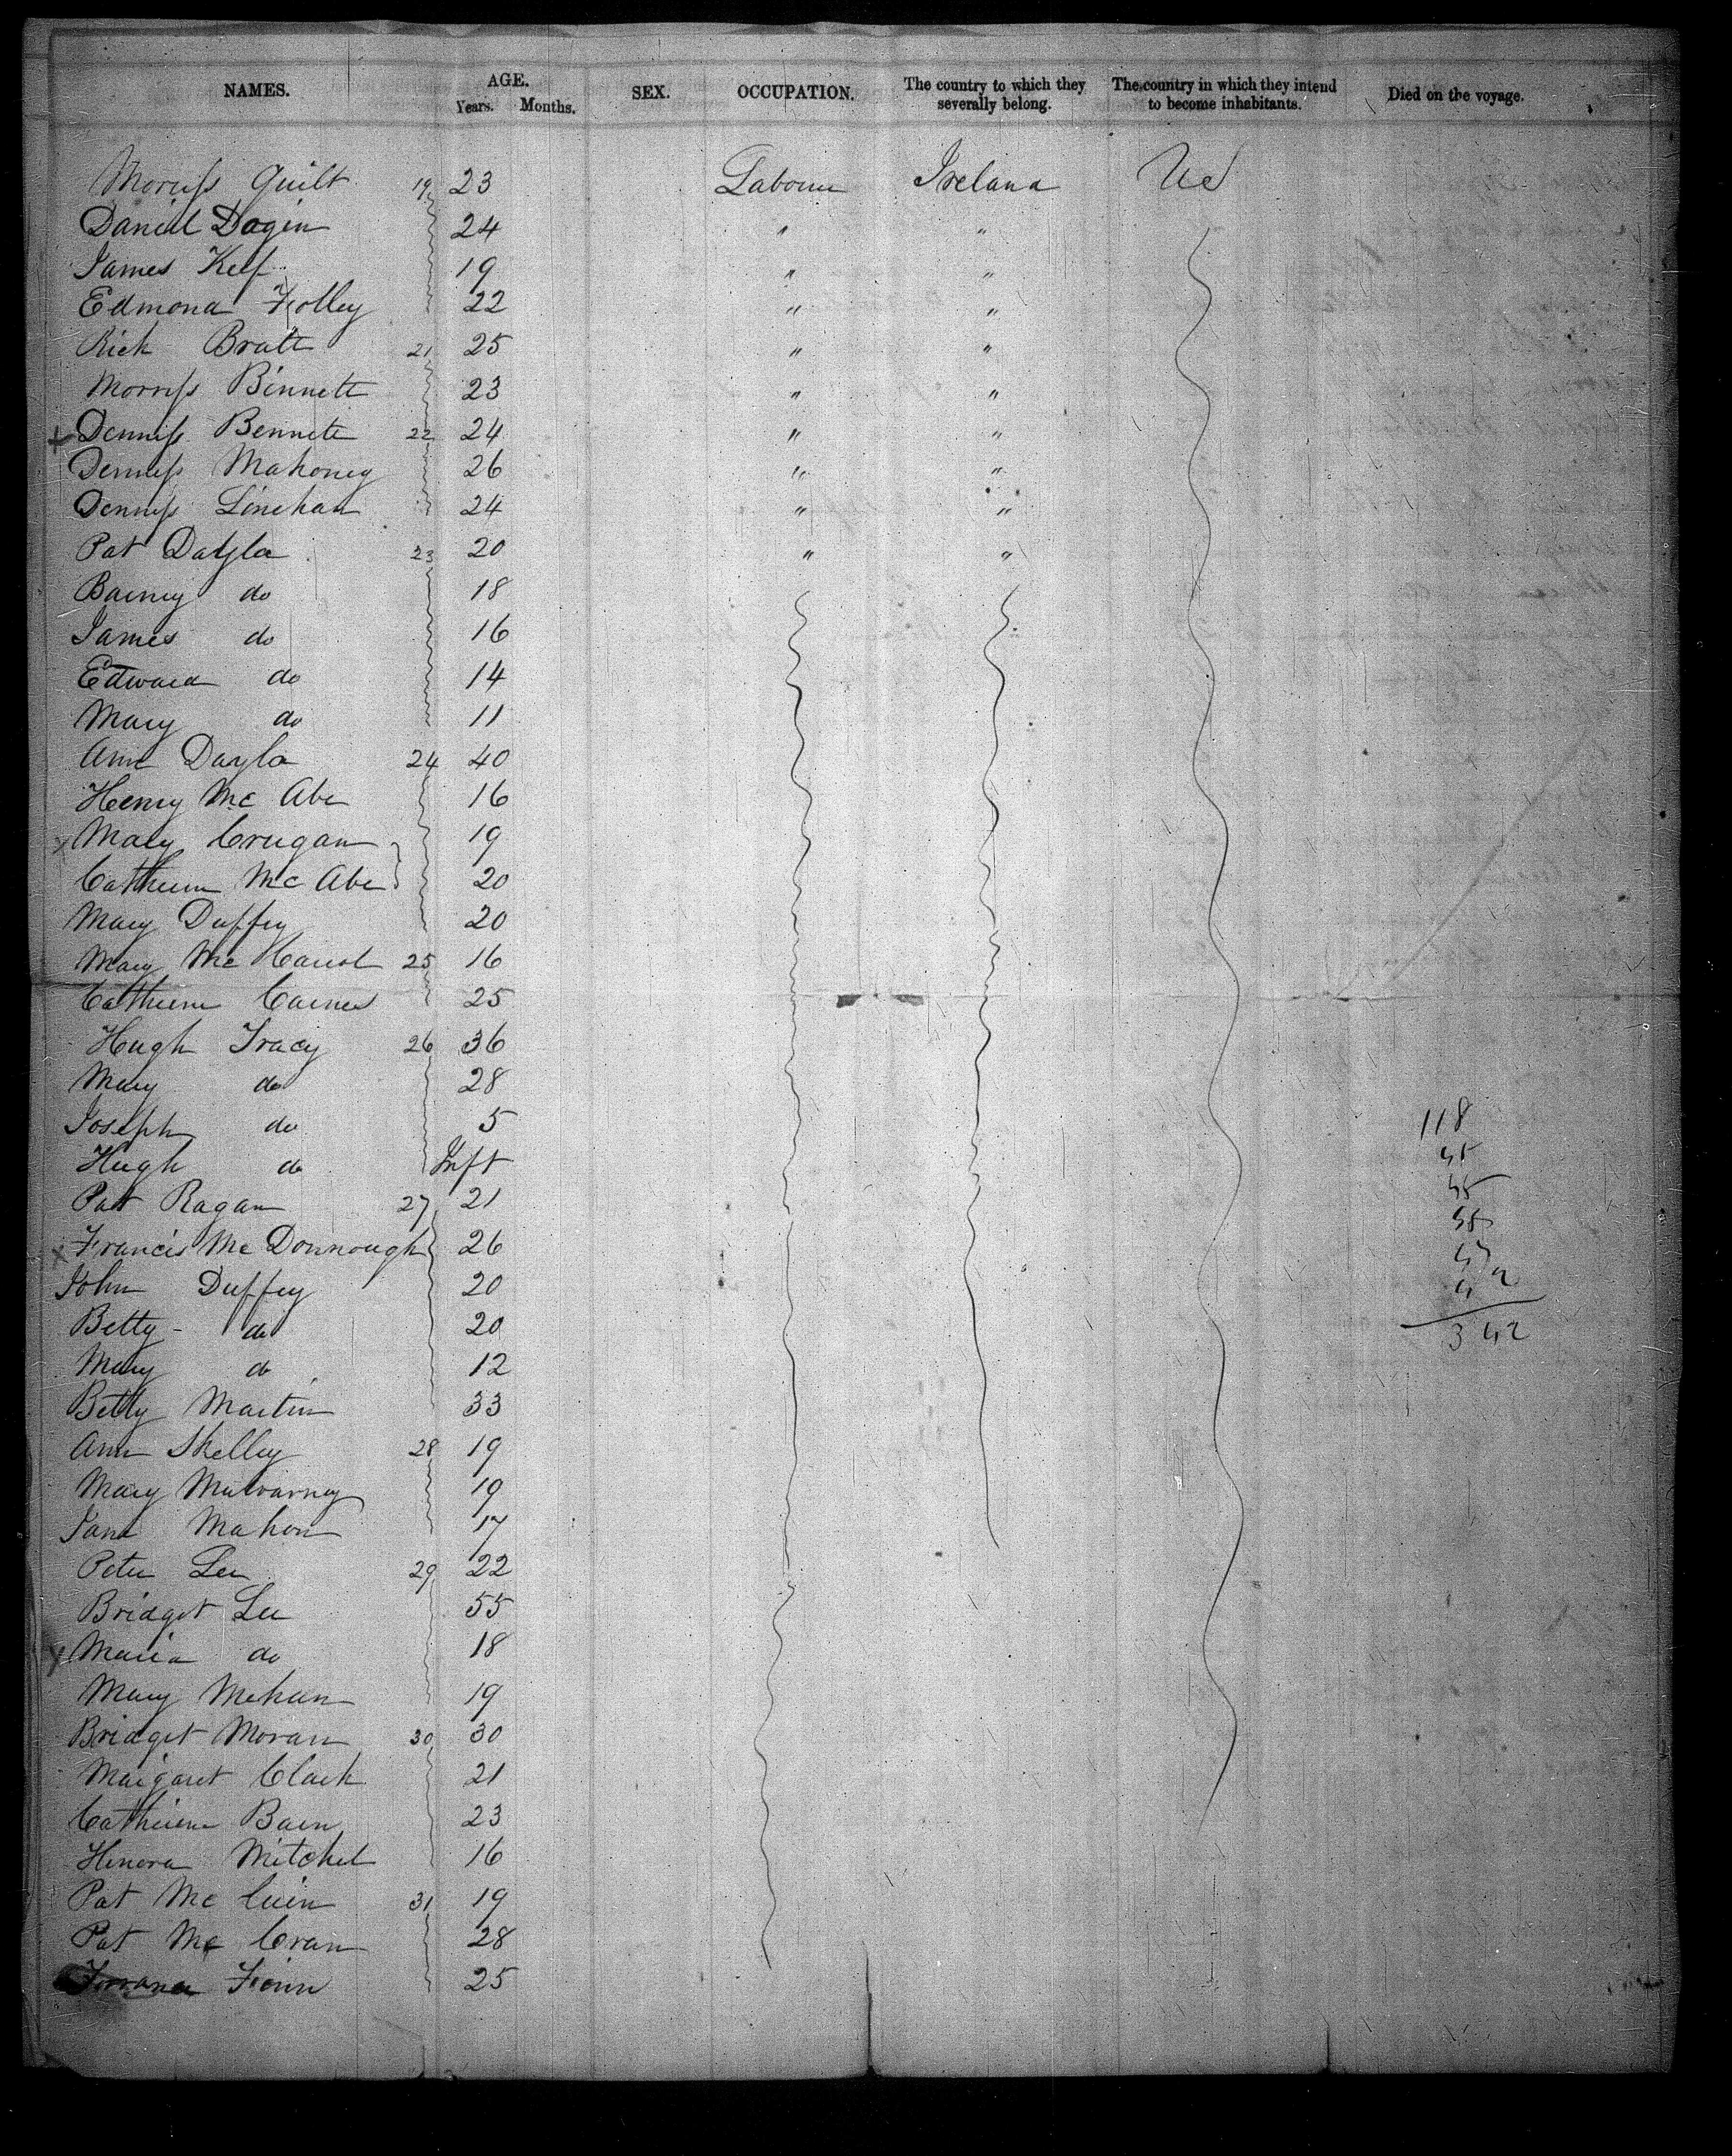 NAMES. AGE. Years. Months. SEX. OCCUPATION. The country to which they severally belong. The country in which they intend to become inhabitants. Died on the voyage.
Morriss Quilt 19 23 Labourer Ireland US
Daniel Dogin 24 " "
James Keef 19 " "
Edmond Folley 22 " "
Rich Bratt 21 25 " "
Morriss Binnett 23 " "
+ Denniss Bennett 22 24 " "
Denniss Mahoney 26 " "
Denniss Linehan 24 " "
Pat Dayla 23 20 " "
Barney do 18
James do 16
Edward do 14
Mary do 11
Ann Dayla 24 40
Henry Mc Abe 16
x Mary Crugan 19
Catherine Mc Abe 20
Mary Duffey 20
Mary Mc 25 16
Catherine Carnes 25
Hugh Tracy 26 36
Mary do 28
Joseph do 5
118
Hugh do Inft
Pat Ragan 27 21
x Francis Mc Donnough 26
John Duffey 20
Betty do 20
342
Mary do 12
Betty Martin 33
Ann Skelley 28 19
Mary Mulvarney 19
Jane Mahon 17
Peter Lee 29 22
Bridget Lee 55
x Maria do 18
Mary Mehan 19
Bridget Moran 30 30
Margaret Clark 21
Catherine Baen 23
Henora Mitchel 16
Pat Mc Cuin 31 19
Pat Mc Cran 28
25